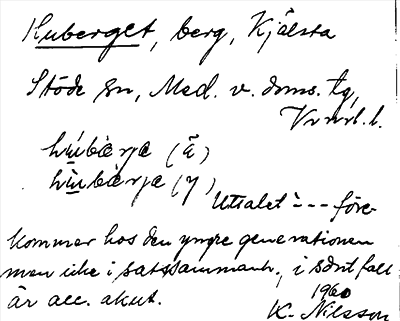 Huberget, berg, Kjälsta
Stöde sn, Med. v. doms. tg,
Vnrl. l.
hu̇bær̨jæ (ä)
hu̇bær̨jæ (y)
Uttalet ` --- före-
kommer hos den yngre generationen
men icke i satssammanh., i sånt fall
är acc. akut.
1960
K. Nilsson